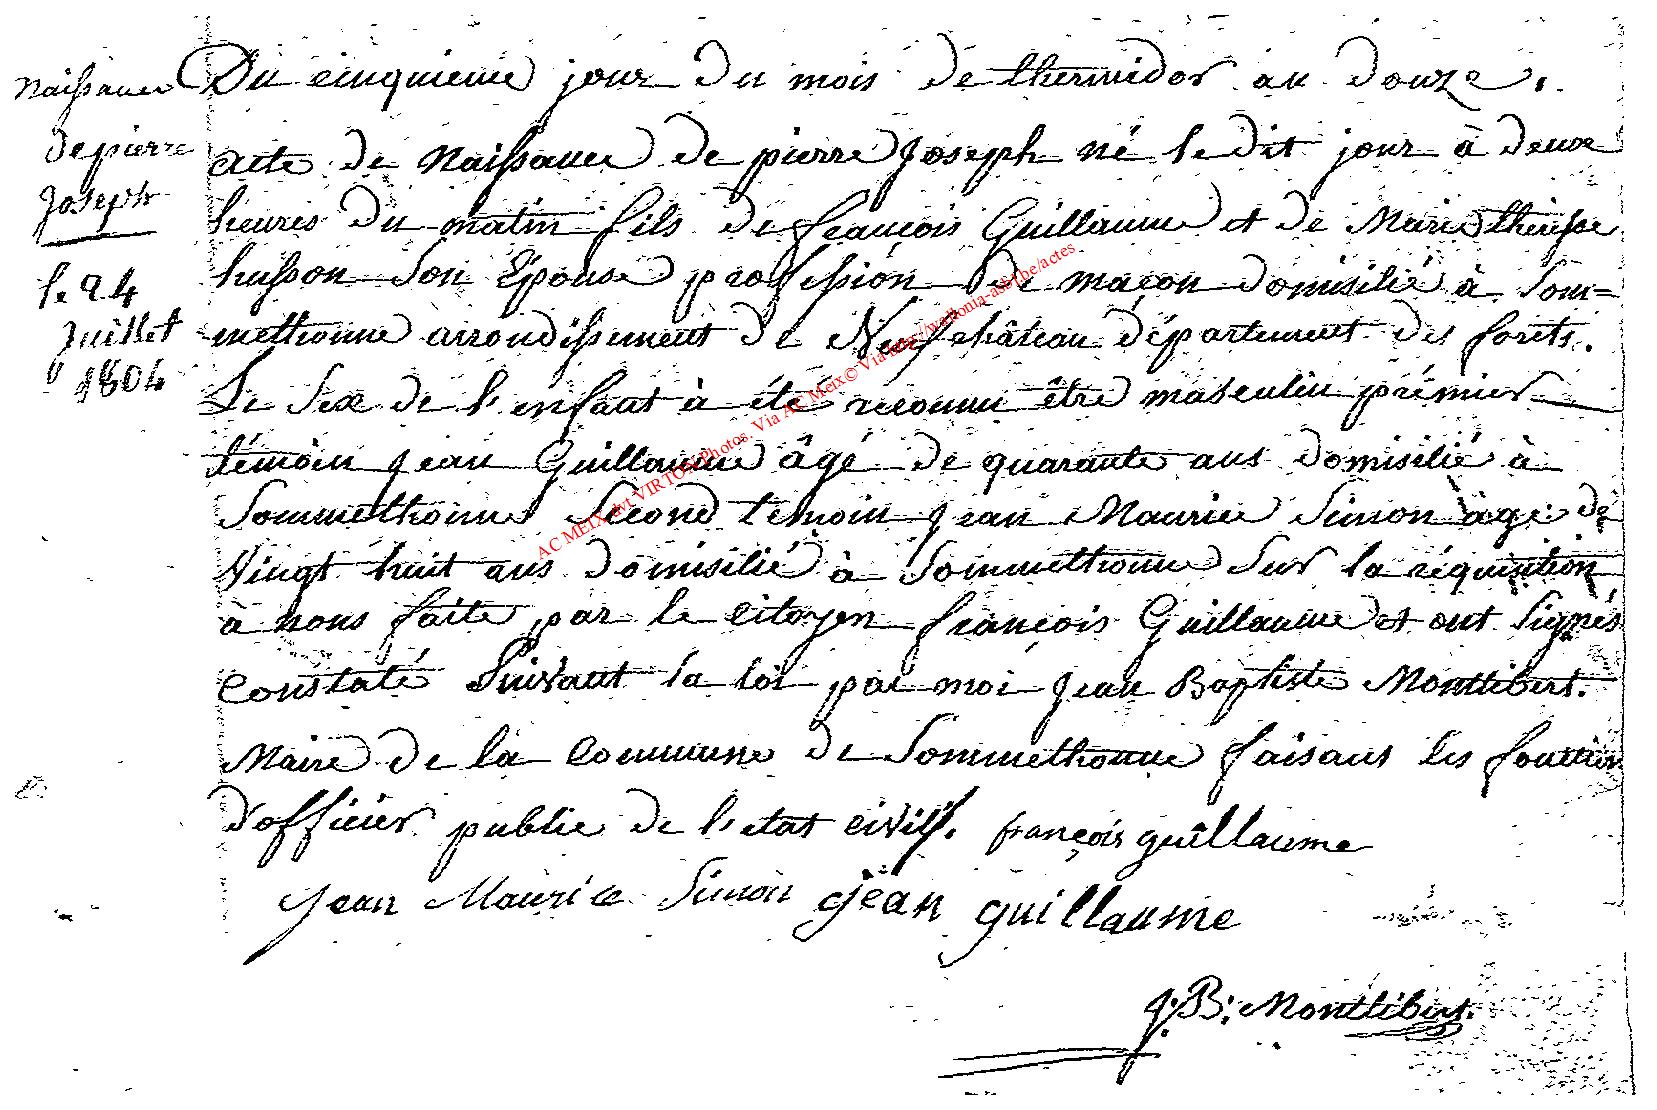 Naissance
de pierre
Joseph
le 24
Juillet
1804
Du cinquieme jour du mois de thermidor an douze.
acte de Naissance de pierre Joseph né le dit jour à deux
heures du matin fils de francois Guillaume et de Marie therese
husson son Epouse profession de maçon domisilié à Som=
methonne arrondissement de Neufchâteau département des forets.
Le Sexe de l'enfant à été reconnu être masculin prémier
témoin Jean Guillaume âgé de quarante ans domisilié à
Sommethonne Second temoin Jean Maurice Simon âgé de
Vingt huit ans domisilié à Sommethonne Sur la réquisition
à nous faite par le citoyen françois Guillaume et ont Signés
Constaté Suivant la loi par moi Jean Baptiste Montlibert.
Maire de la Commune de Sommethonne faisant les fonction
d'officier public de l'état civil. françois guillaume
Jean Maurice Simon jean guillaume
J:B: Montlibert.
AC MEIX-dvt-VIRTON Photos. Via AC Meix© Via http://wallonia-asbl.be/actes